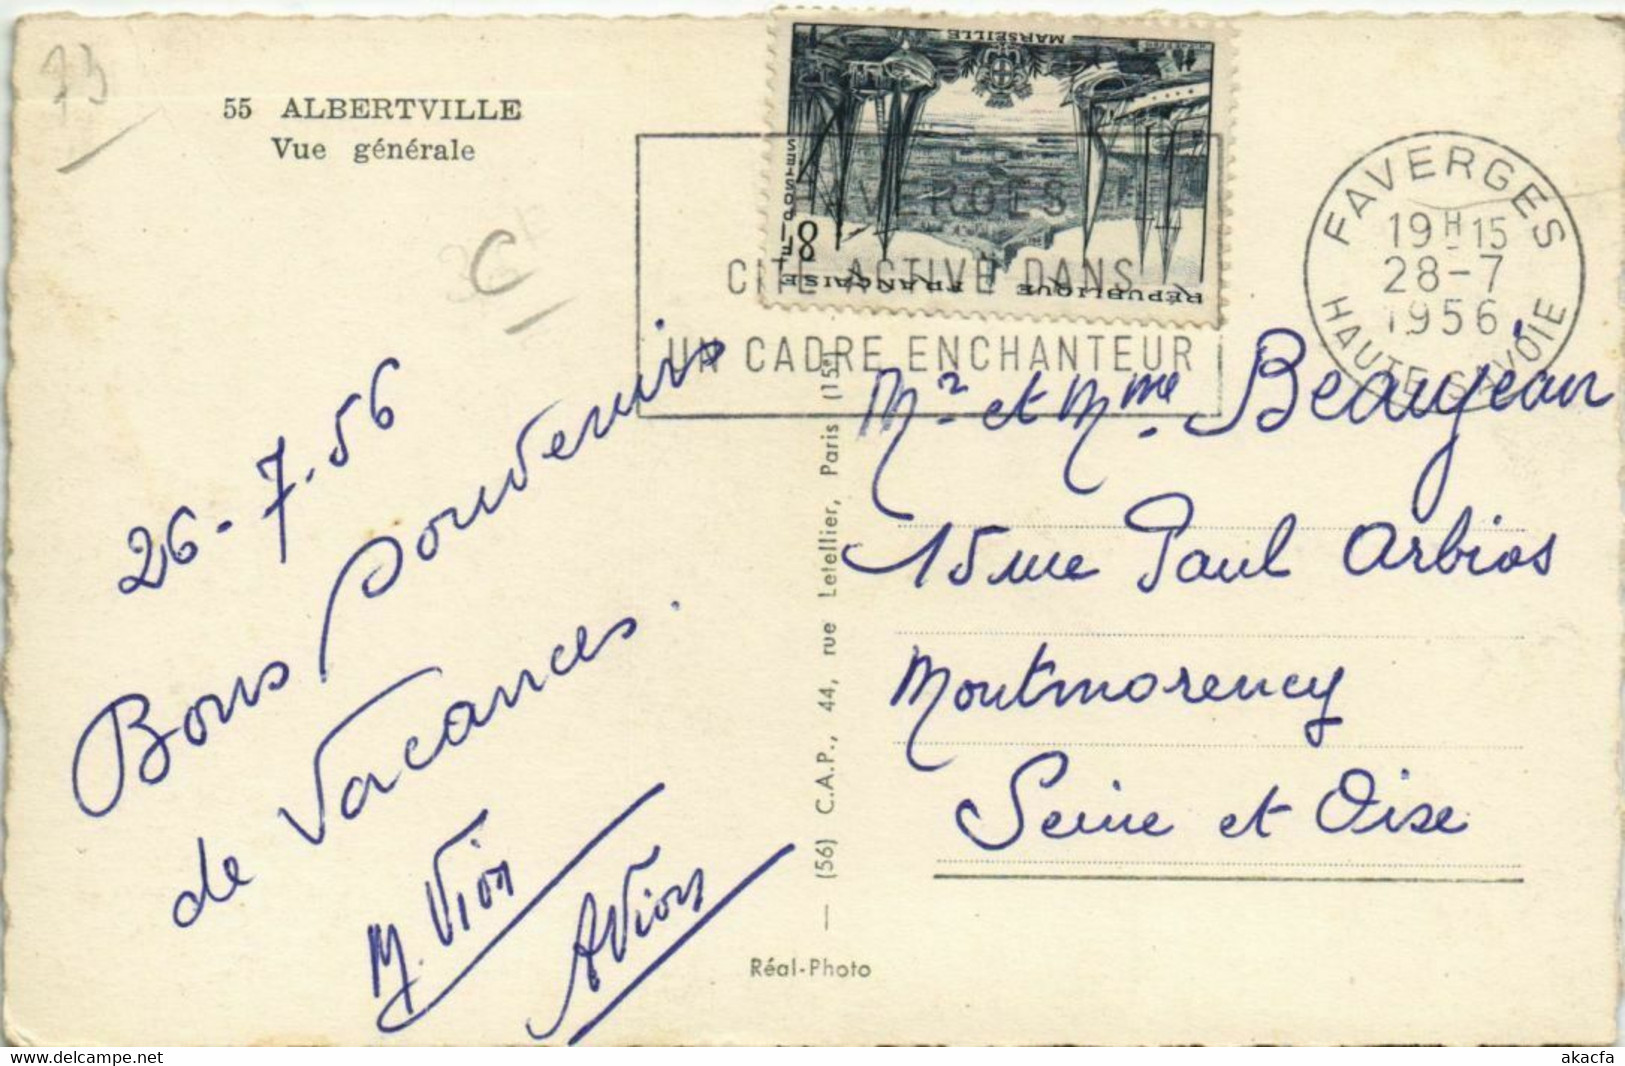 73
55 ALBERTVILLE
Vue générale
C
26-7.56
Bons souvenirs
de Vacances.
M. Vion
AVion
MARSEILLE
8F
POSTES
RÉPUBLIQUE FRANÇAISE
FAVERGES
CITE ACTIVE DANS
UN CADRE ENCHANTEUR
FAVERGES
19H15
28-7
1956
HAUTE SAVOIE
(56) C.A.P., 44, rue Letellier, Paris (15e)
Réal-Photo
Mr et Mme. Beaujean
15 rue Paul Arbios
Montmorency
Seine et Oise
delcampe.net
akacfa